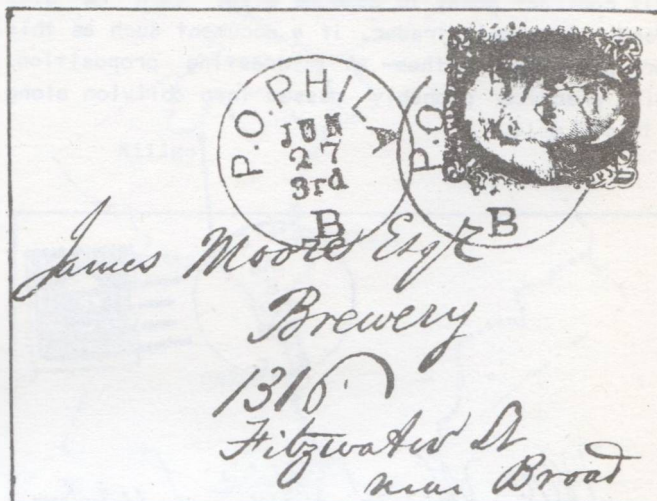 P.O. PHILA
JUN
27
3rd
B
P.O.
B
James Moore Esqr
Brewery
1316
Fitzwater St
near Broad